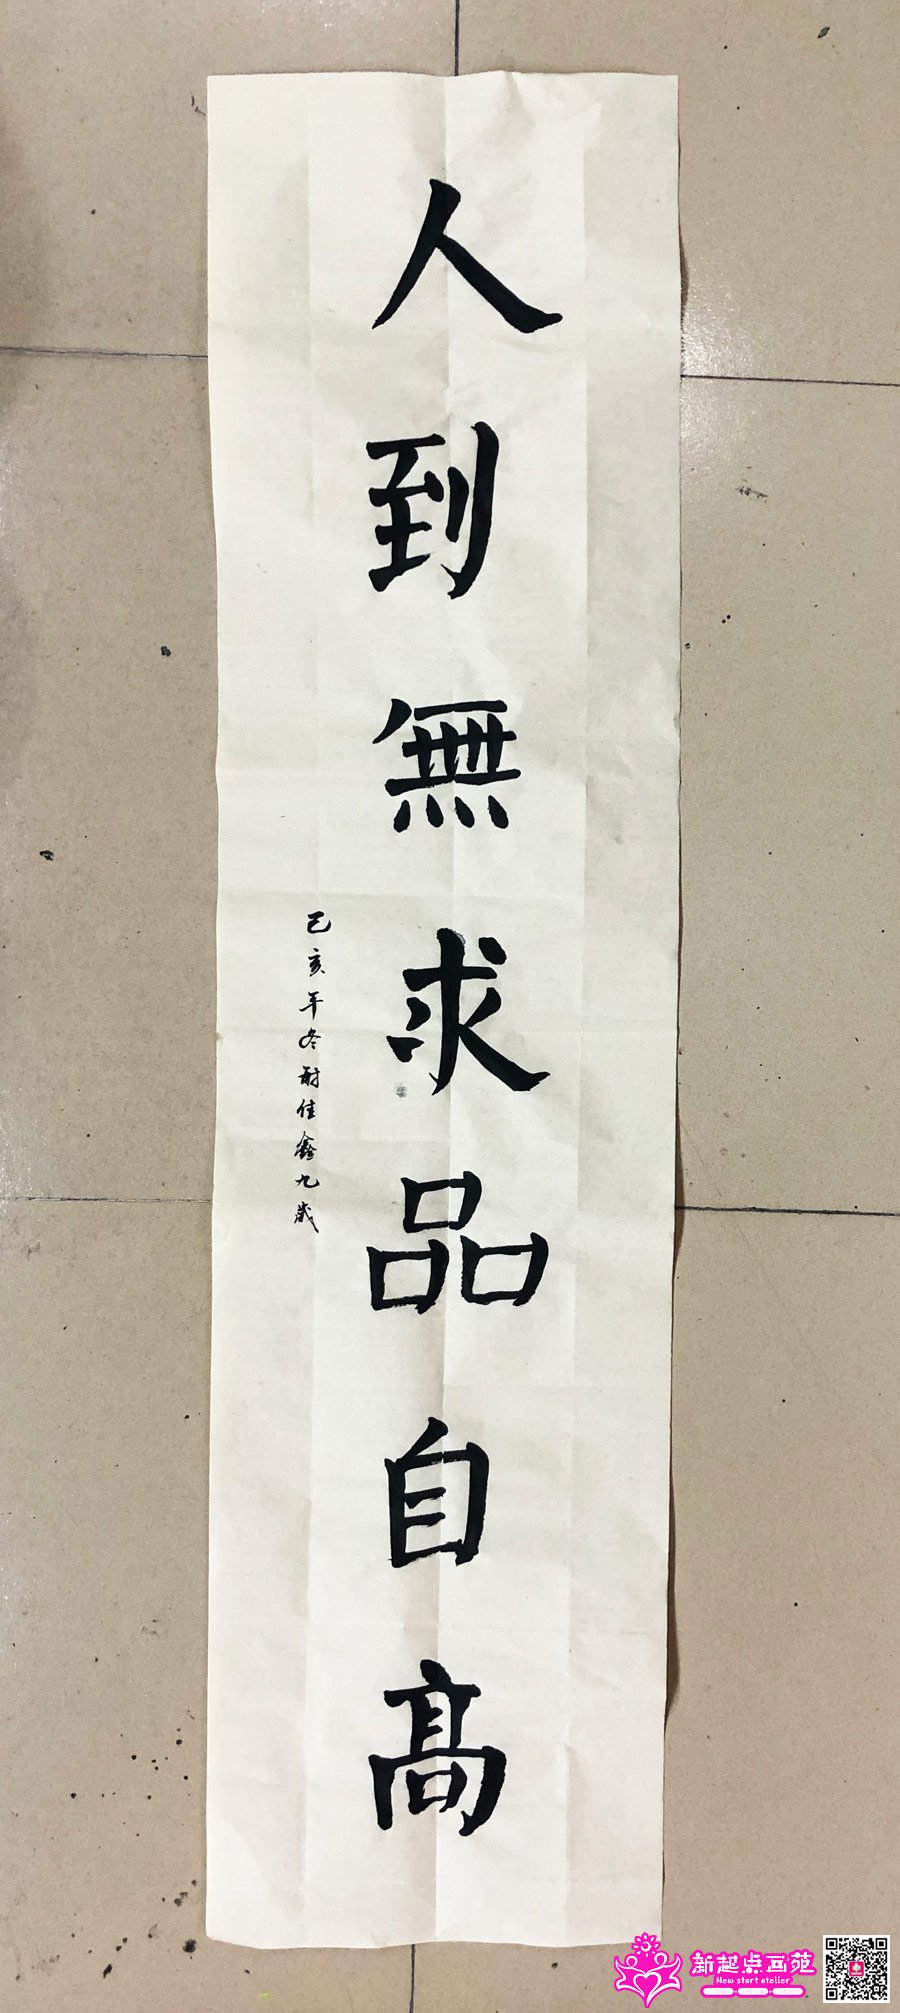 人到無求品自高
己亥年冬耐佳鑫九歲
新起点画苑
New start atelier